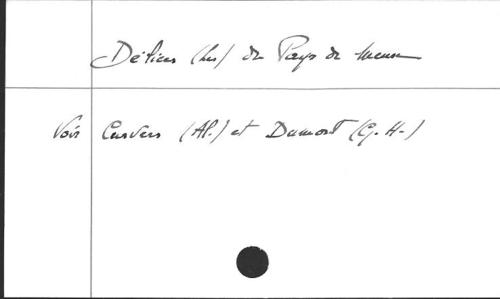 Délices (Les) du Pays de Meuse
Voir Curvers (Al.) et Dumont (G. H.)